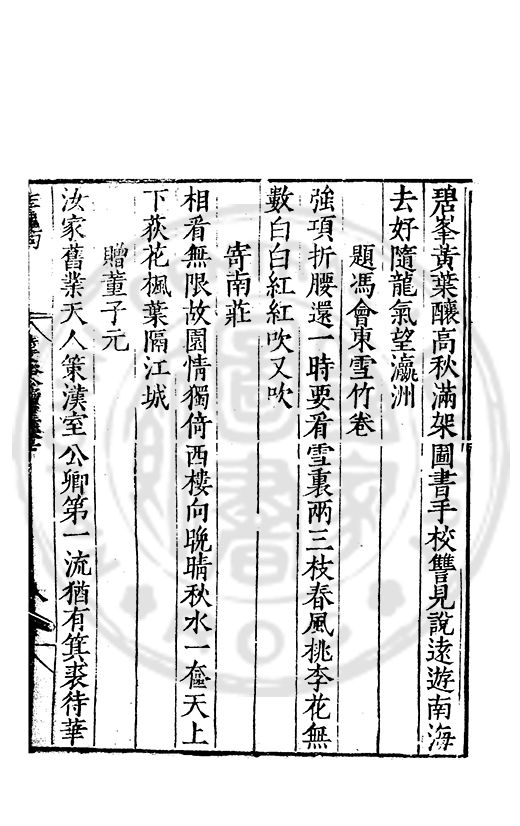 碧峯黃葉釀高秋滿架圖書手校讐見說遠遊南海
去好隨龍氣望瀛洲
題馮會東雪竹卷
強項折腰還一時要看雪裏兩三枝春風桃李花無
數白白紅紅吹又吹
寄南莊
相看無限故園情獨倚西樓向晚晴秋水一奩天上
下荻花楓葉隔江城
贈董子元
汝家舊業天人策漢室公卿第一流猶有箕裘待華